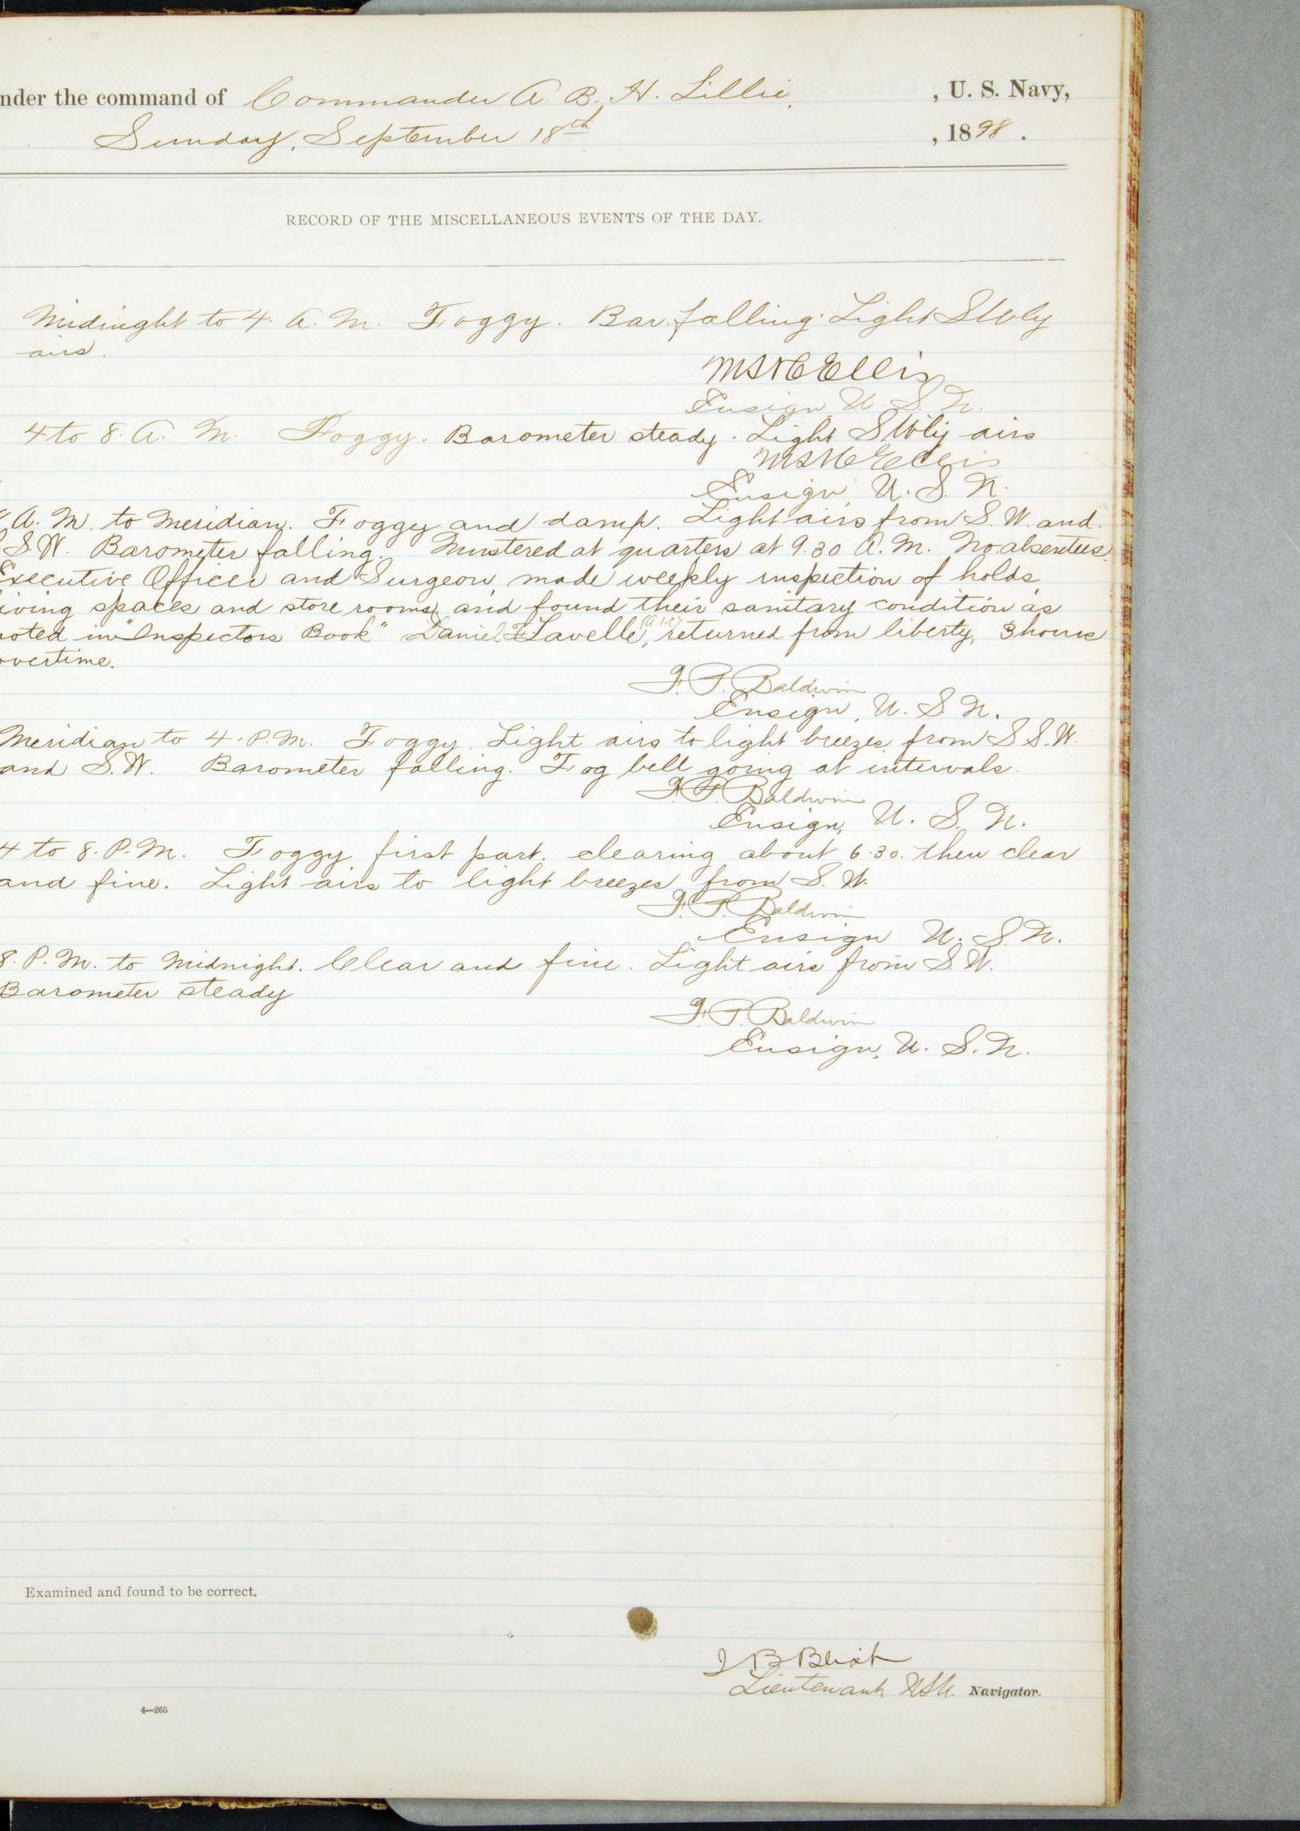 nder the command of Commander A. B. H. Lillie, , U. S. Navy,
Sunday, September 18th , 1898 .
RECORD OF THE MISCELLANEOUS EVENTS OF THE DAY.
Midnight to 4 A. M. Foggy. Bar. falling. Light SWly
airs.
Ellis
Ensign U. S. N.
4 to 8. A. M. Foggy. Barometer steady. Light SWly airs
Ellis
Ensign, U. S. N.
A. M. to Meridian. Foggy and damp. Light airs from S. W. and
S.W. Barometer falling. Mustered at quarters at 9.30 A. M. No absentees.
Executive Officer and Surgeon made weekly inspection of holds
iving spaces and store rooms, and found their sanitary condition as
noted in "Inspectors Book" Daniel Lavelle, returned from liberty, 3 hours
overtime.
F. P. Baldwin
Ensign, U. S. N.
Meridian to 4. P.M. Foggy. Light airs to light breezes from S S.W.
and S.W. Barometer falling. Fog bell going at intervals.
F. P. Baldwin
Ensign, U. S. N.
4 to 8. P.M. Foggy first part. clearing about 6.30. then clear
and fine. Light airs to light breezes from S. W.
F. P. Baldwin
Ensign U. S. N.
8. P.M. to Midnight. Clear and fine. Light airs from S.W.
Barometer steady
F. P. Baldwin
Ensign, U. S. N.
Examined and found to be correct.
J B Blish
Lieutenant USN. Navigator.
4—265